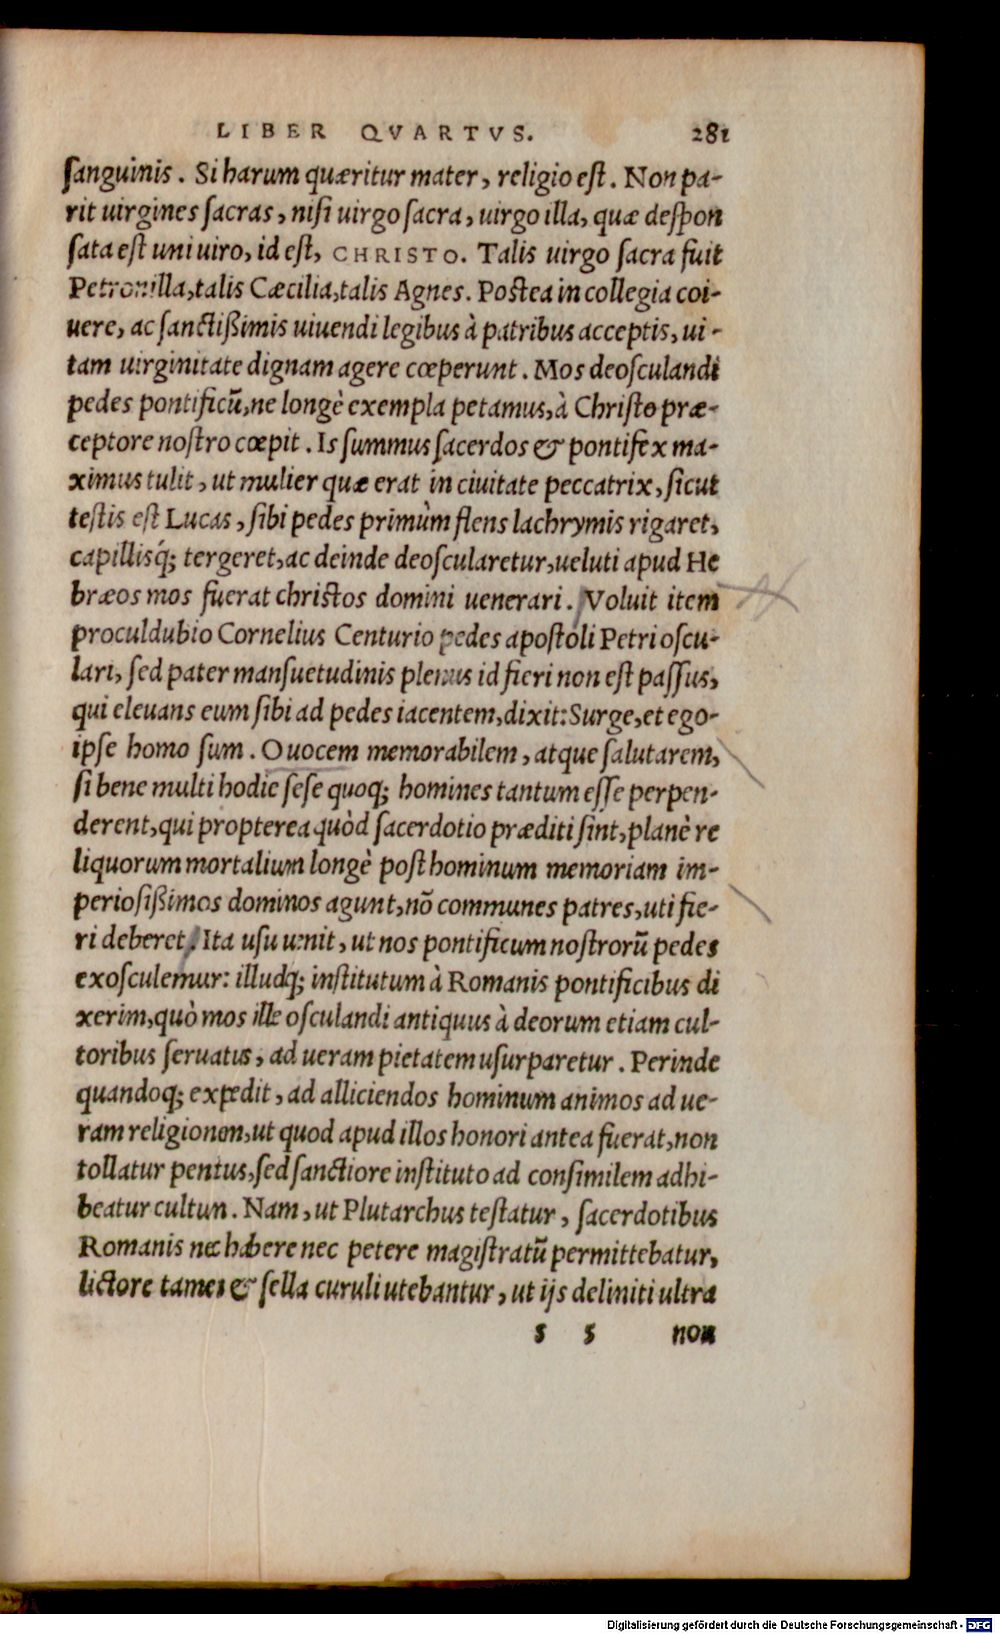 LIBER QVARTVS. 281
ſanguinis. Si harum quæritur mater, religio eſt. Non pa-
rit uirgines ſacras, niſi uirgo ſacra, uirgo illa, quæ deſpon
ſata eſt uni uiro, id eſt, CHRISTO. Talis uirgo ſacra fuit
Petronilla, talis Cæcilia, talis Agnes. Poſtea in collegia coi-
uere, ac ſanctißimis uiuendi legibus à patribus acceptis, ui-
tam uirginitate dignam agere cœperunt. Mos deoſculandi
pedes pontificũ, ne longè exempla petamus, à Chriſto præ-
ceptore noſtro cœpit. Is ſummus ſacerdos & pontifex ma-
ximus tulit, ut mulier quæ erat in ciuitate peccatrix, ſicut
teſtis eſt Lucas, ſibi pedes primùm flens lachrymis rigaret,
capillisq́; tergeret, ac deinde deoſcularetur, ueluti apud He
bræos mos fuerat chriſtos domini uenerari. Voluit item
proculdubio Cornelius Centurio pedes apoſtoli Petri oſcu-
lari, ſed pater manſuetudinis plenus id fieri non eſt paſſus,
qui eleuans eum ſibi ad pedes iacentem, dixit: Surge, et ego-
ipſe homo ſum. O uocem memorabilem, atque ſalutarem,
ſi bene multi hodie ſeſe quoq; homines tantum eſſe perpen-
derent, qui propterea quòd ſacerdotio præditi ſint, planè re
liquorum mortalium longè poſt hominum memoriam im-
perioſißimos dominos agunt, nõ communes patres, uti fie-
ri deberet. Ita uſu uenit, ut nos pontificum noſtrorũ pedes
exoſculemur: illudq; inſtitutum à Romanis pontificibus di
xerim, quò mos ille oſculandi antiquus à deorum etiam cul-
toribus ſeruatus, ad ueram pietatem uſurparetur. Perinde
quandoq; expedit, ad alliciendos hominum animos ad ue-
ram religionem, ut quod apud illos honori antea fuerat, non
tollatur penitus, ſed ſanctiore inſtituto ad conſimilem adhi-
beatur cultum. Nam, ut Plutarchus teſtatur, ſacerdotibus
Romanis nec habere nec petere magiſtratũ permittebatur,
lictore tamen & ſella curuli utebantur, ut ijs deliniti ultra
s 5 non
Digitalisierung gefördert durch die Deutsche Forschungsgemeinschaft - DFG